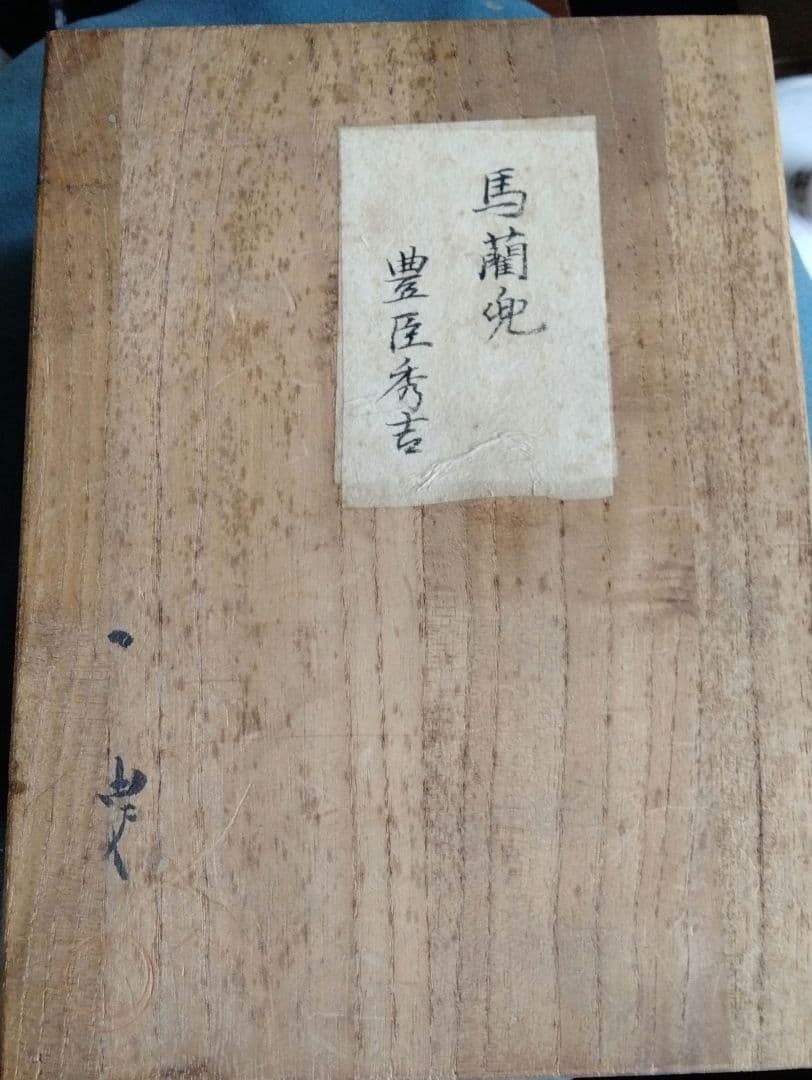 馬藺兜
豊臣秀吉